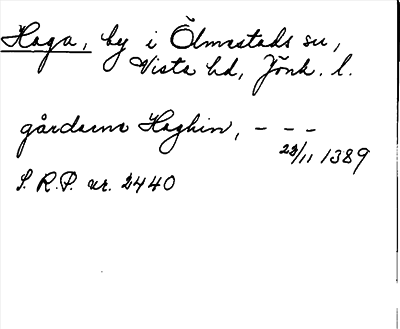 Haga, by i Ölmstads sn,
Vista hd, Jönk. l.
gårdarne Haghin, - - -
23/11 1389
S. R. P. nr. 2440